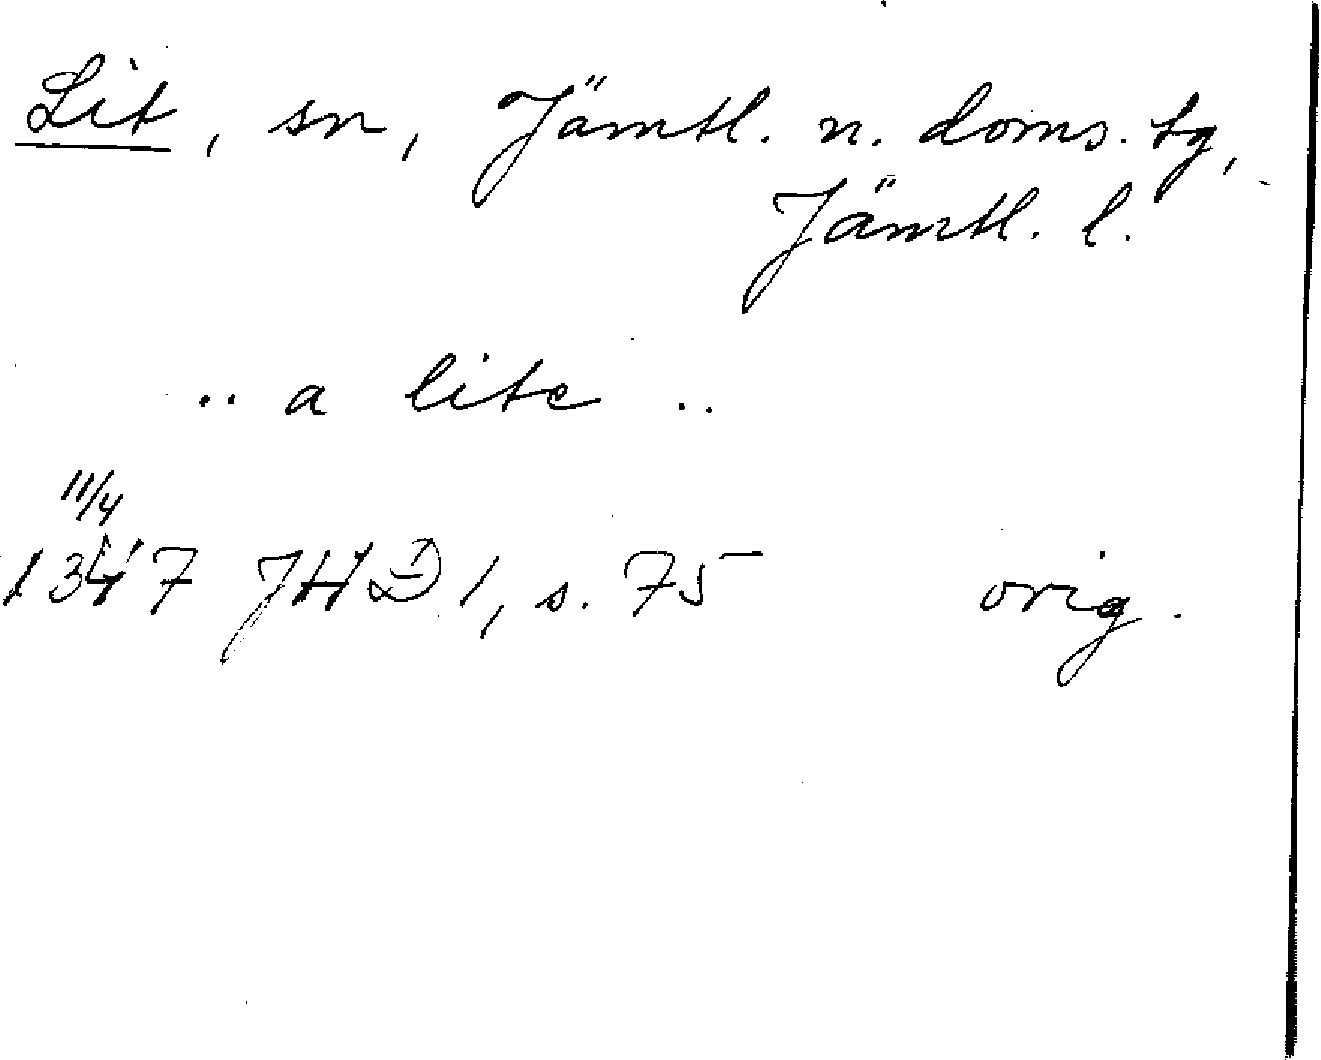 Lit, sn, Jämtl. n. doms. tg,
Jämtl. l.
.. a lite ..
11/4
1347 JHD 1, s. 75 orig.